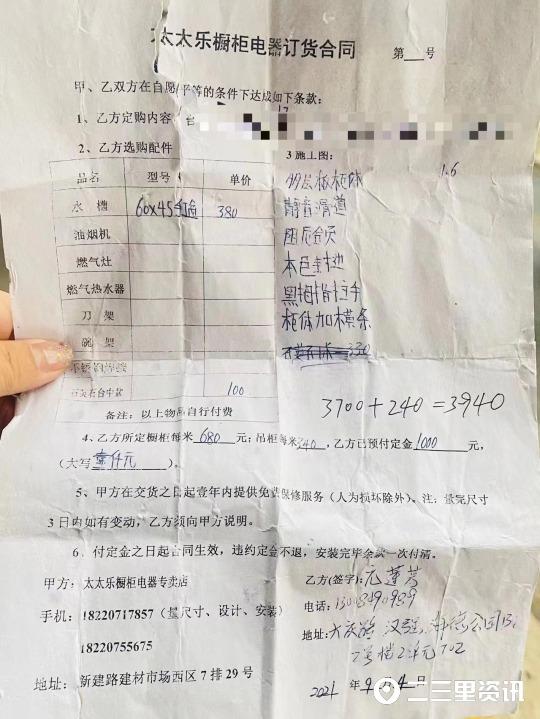 太太乐橱柜电器订货合同 第 号
甲、乙双方在自愿 平等的条件下达成如下条款：
1、乙方定购内容：
2、乙方选购配件
3 施工图：
品名 型号 单价
水 槽 60×45 380
油烟机
燃气灶
燃气热水器
刀 架
碗 架
100
多层板柜体 1.6
静音滑道
阻尼合页
黑拇指拉手
柜体加模条
3700+240=3940
备注：以上物 自行付费
4、乙方所定橱柜每米 680 元；吊柜每米 340，乙方已预付定金 1000 元，
（大写 壹仟元 ）。
5、甲方在交货之日起壹年内提供免费保修服务（人为损坏除外）、注：量完尺寸
3 日内如有变动，乙方须向甲方说明。
6、付定金之日起合同生效，违约定金不退，安装完毕余款一次付清。
甲方：太太乐橱柜电器专卖店
手机：18220717857（量尺寸、设计、安装）
18220755675
地址：新建路建材市场西区 7 排 29 号
乙方(签字)：
电话：
地址：大庆路
2021 年 9 月 4 日
二三里资讯